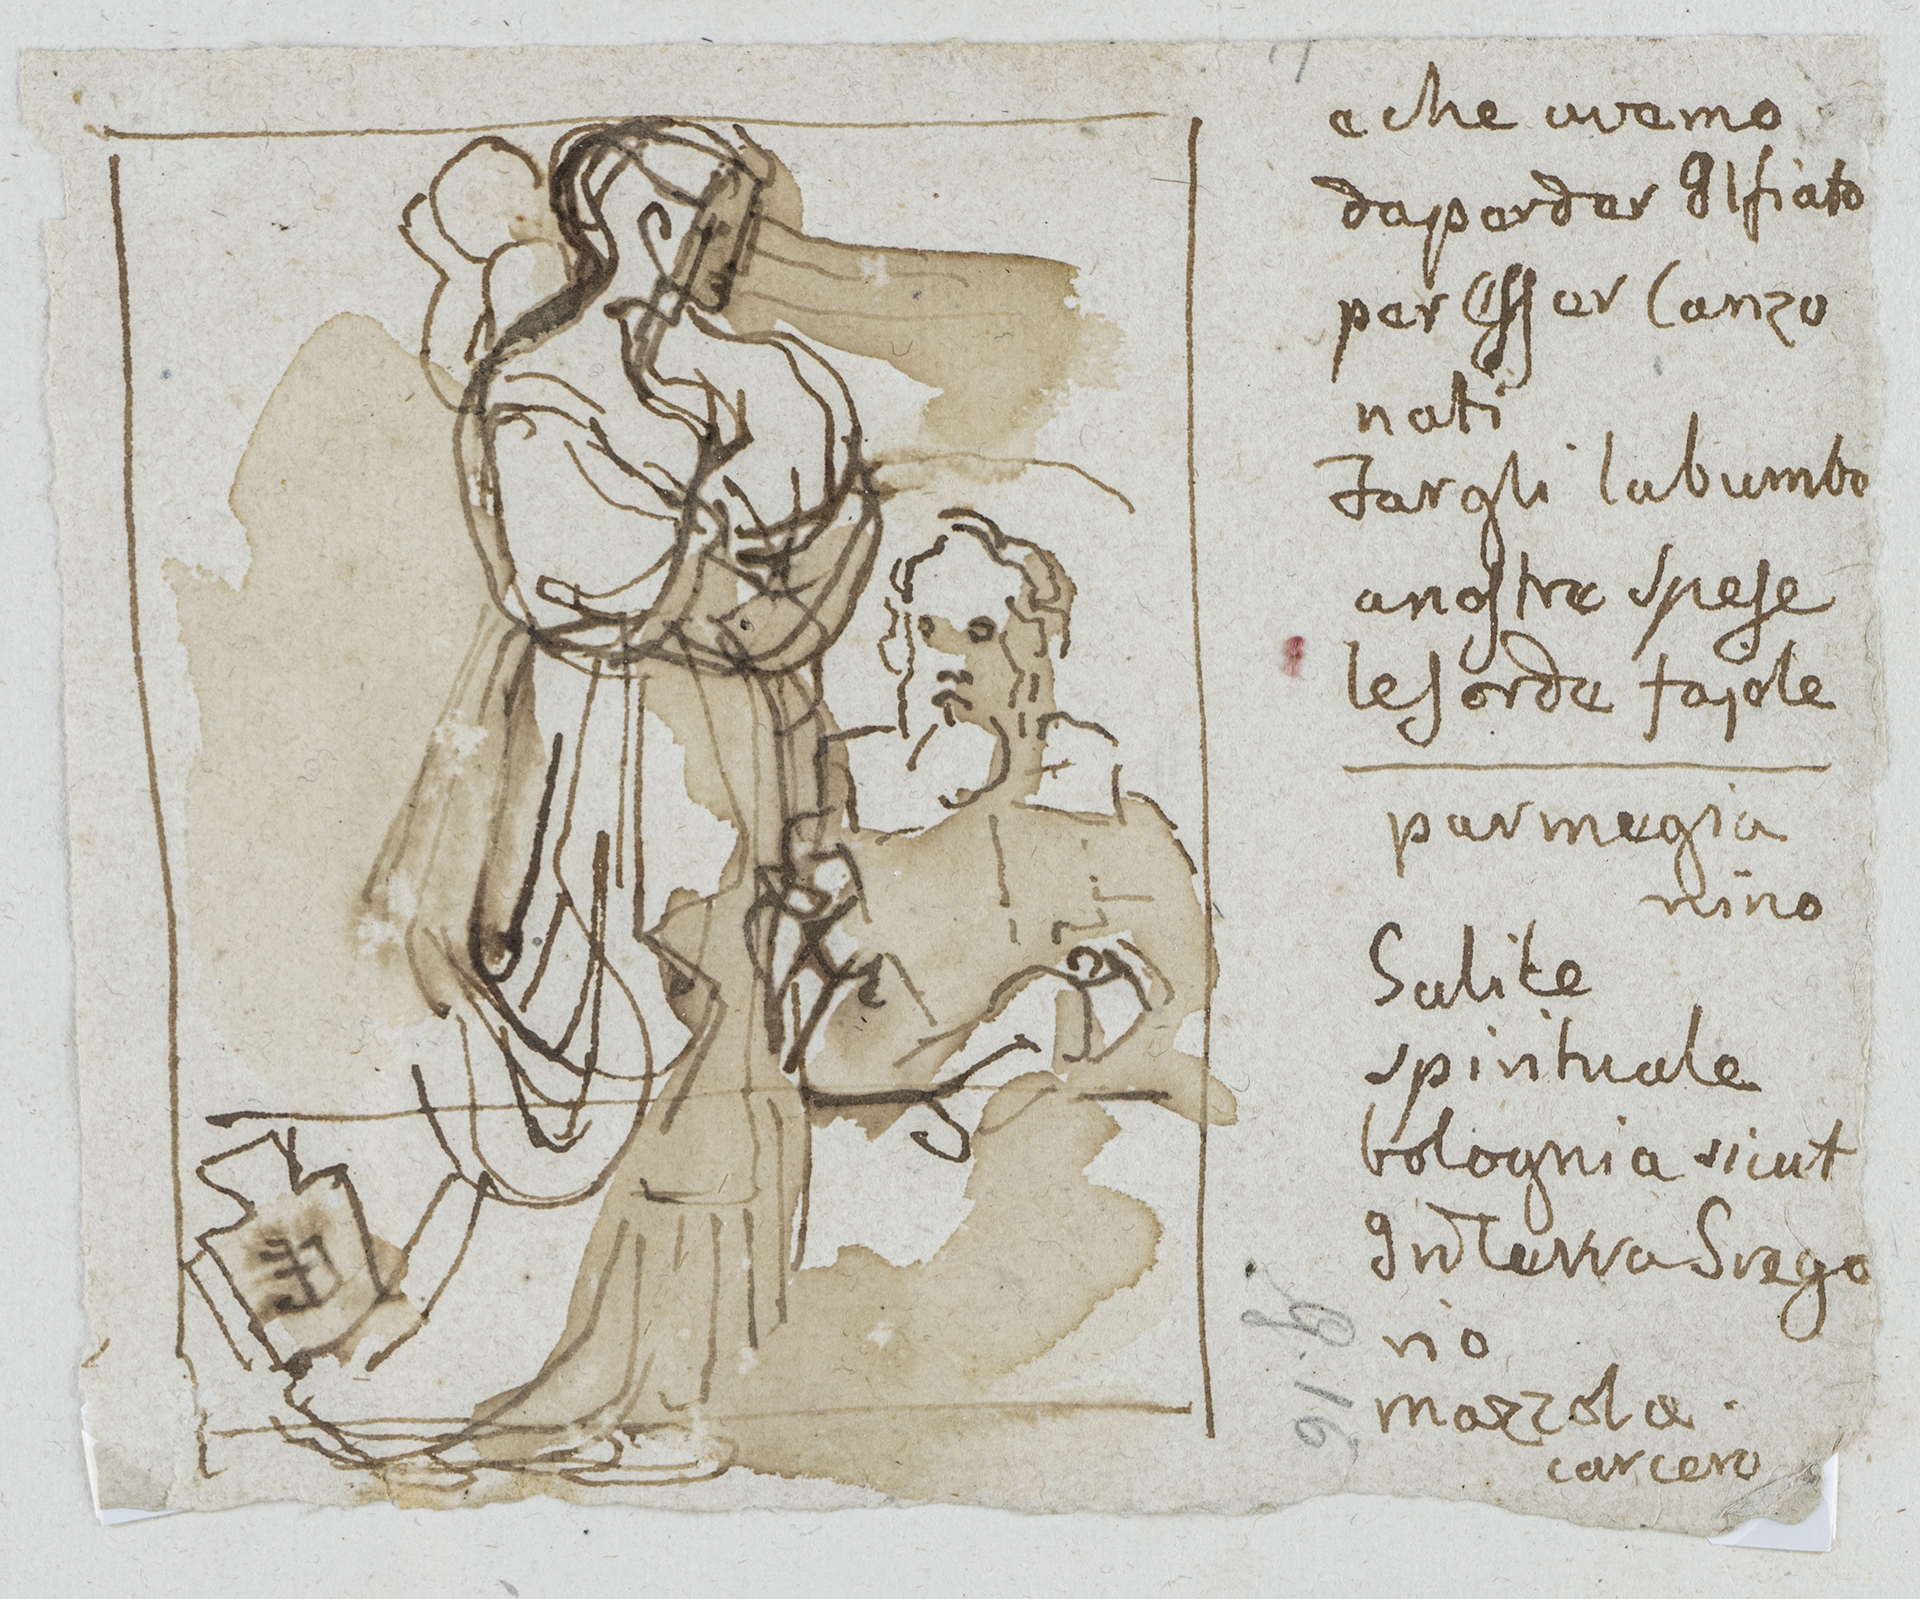 e che avemo
daperder Ilfiato
per Esser Canzo
nati
Fargli labumba
anostre spese
le sorde tajole
parmegia
nino
Salite
spirituale
bolognia sicut
InTerra Srego
rio
mazzola.
carcero
91.8